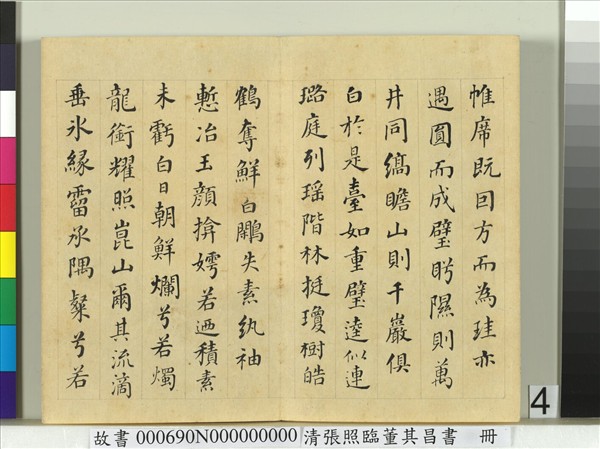 帷席既因方而為珪亦
遇圓而成璧眄隰則萬
井同縞瞻山則千巖俱
白於是臺如重璧逵似連
璐庭列瑶階林挺瓊樹皓
鶴奪鮮白鷴失素紈袖
慙冶玉顔揜嫮若迺積素
未虧白日朝鮮爛兮若燭
龍銜耀照崑山爾其流滴
垂氷緣霤承隅粲兮若
4
故書 000690N000000000 清張照臨董其昌書 冊